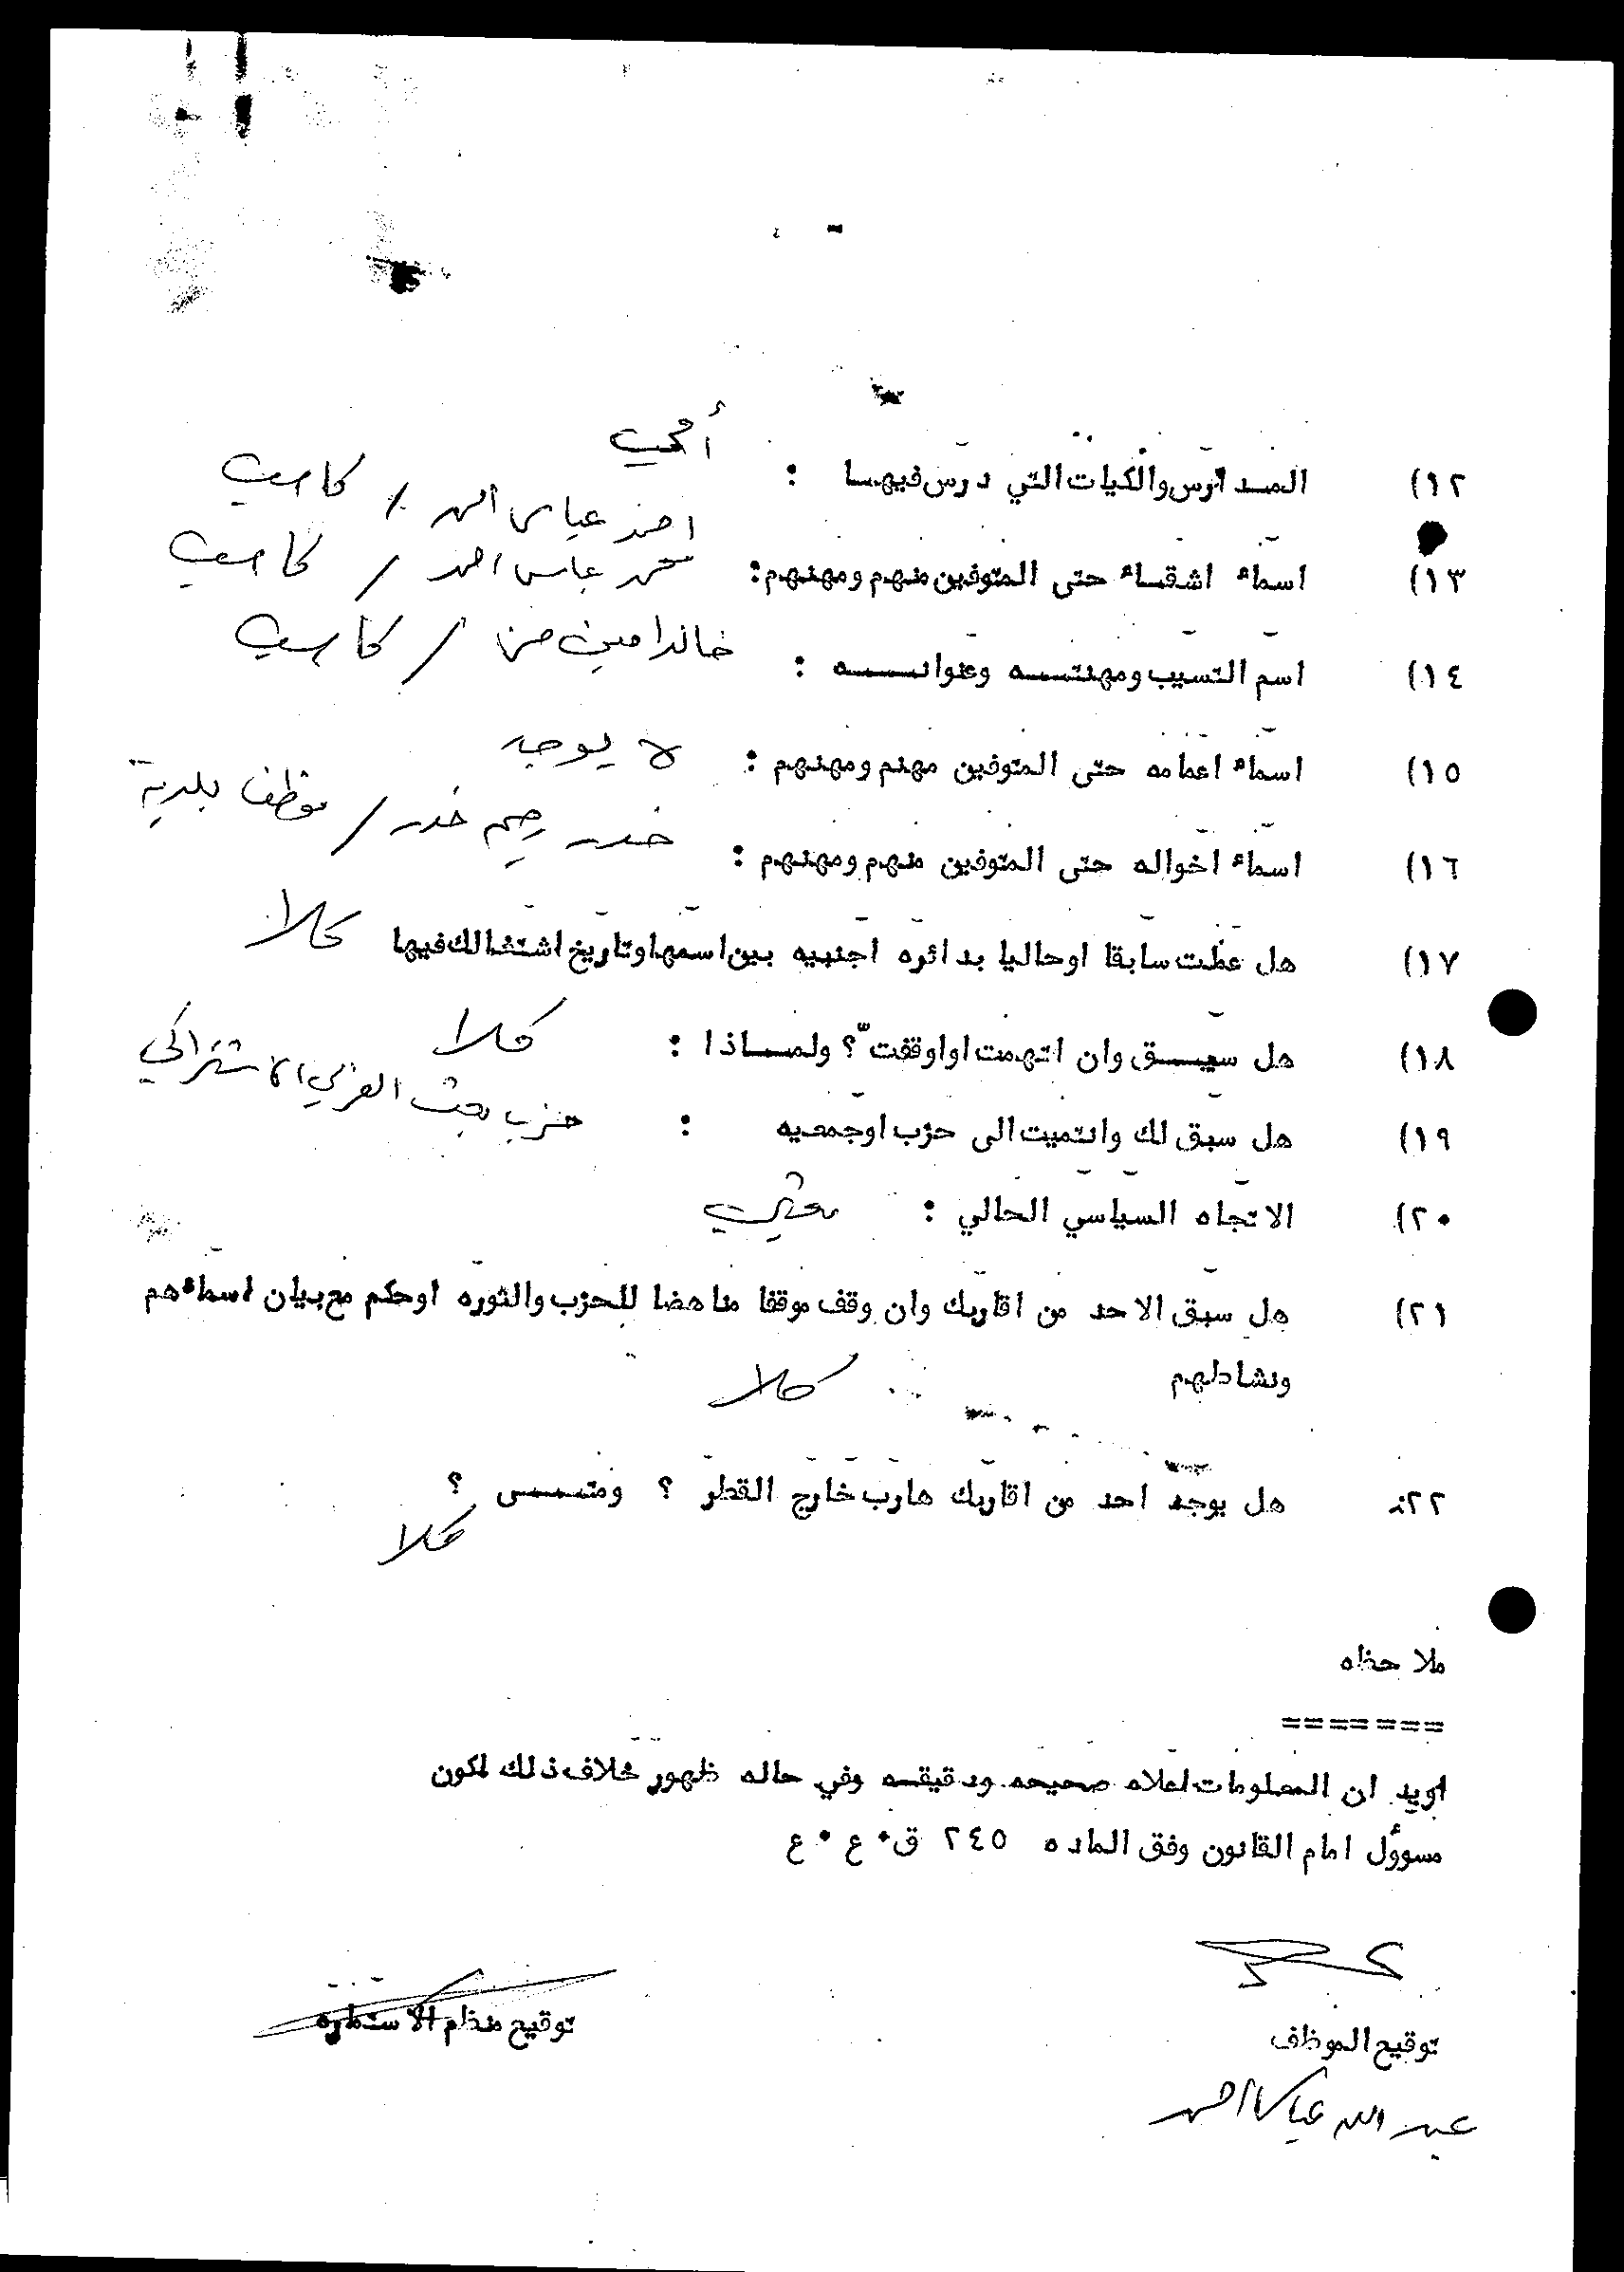 ١٢) المدارس والكليات التي درس فيها : أمي
١٣) اسماء اشقاء حتى المتوفين منهم ومهنهم: احمد عباس احمد / كاسب
محمد عباس احمد / كاسب
١٤) اسم النسيب ومهنته وعنوانه : خالد امين حسن / كاسب
١٥) اسماء اعمامه حتى المتوفين مهنم ومهنهم : لا يوجد
١٦) اسماء اخواله حتى المتوفين منهم ومهنهم : خدر رحيم خدر / موظف بلدية
١٧) هل عملت سابقا اوحاليا بدائره اجنبيه بين اسمها وتاريخ اشتغالك فيها كلا
١٨) هل سبق وان اتهمت او اوقفت ؟ ولماذا : كلا
١٩) هل سبق لك وانتميت الى حزب اوجمعيه : حزب بعث العربي الاشتراكي
٢٠) الاتجاه السياسي الحالي : بعثي
٢١) هل سبق الاحد من اقاربك وان وقف موقفا مناهضا للحزب والثوره اوحكم مع بيان اسماءهم
ونشاطهم كلا
٢٢: هل يوجد احد من اقاربك هارب خارج القطر ؟ ومتى ؟
كلا
ملاحظه
=======
اويد ان المعلومات اعلاه صحيحه ودقيقه وفي حاله ظهور خلاف ذلك اكون
مسوؤل امام القانون وفق الماده ٢٤٥ ق٠ ع ٠ ع
توقيع الموظف
توقيع منظم الاستماره
عبد الله عباس احمد